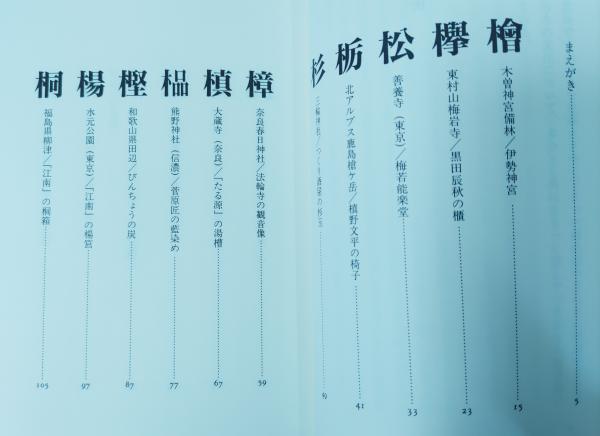 まえがき 5
檜
木曽神宮備林／伊勢神宮 15
欅
東村山梅岩寺／黒田辰秋の櫃 23
松
善養寺（東京）／梅若能楽堂 33
栃
北アルプス鹿島槍ケ岳／槙野文平の椅子 41
杉
三輪神社／つくり酒屋の杉玉
樟
奈良春日神社／法輪寺の観音像 59
槙
大蔵寺（奈良）／「たる源」の湯槽 67
榀
熊野神社（信濃）／菅原匠の藍染め 77
樫
和歌山県田辺／びんちょうの炭 87
楊
水元公園（東京）／「江南」の楊筥 97
桐
福島県柳津／「江南」の桐箱 105